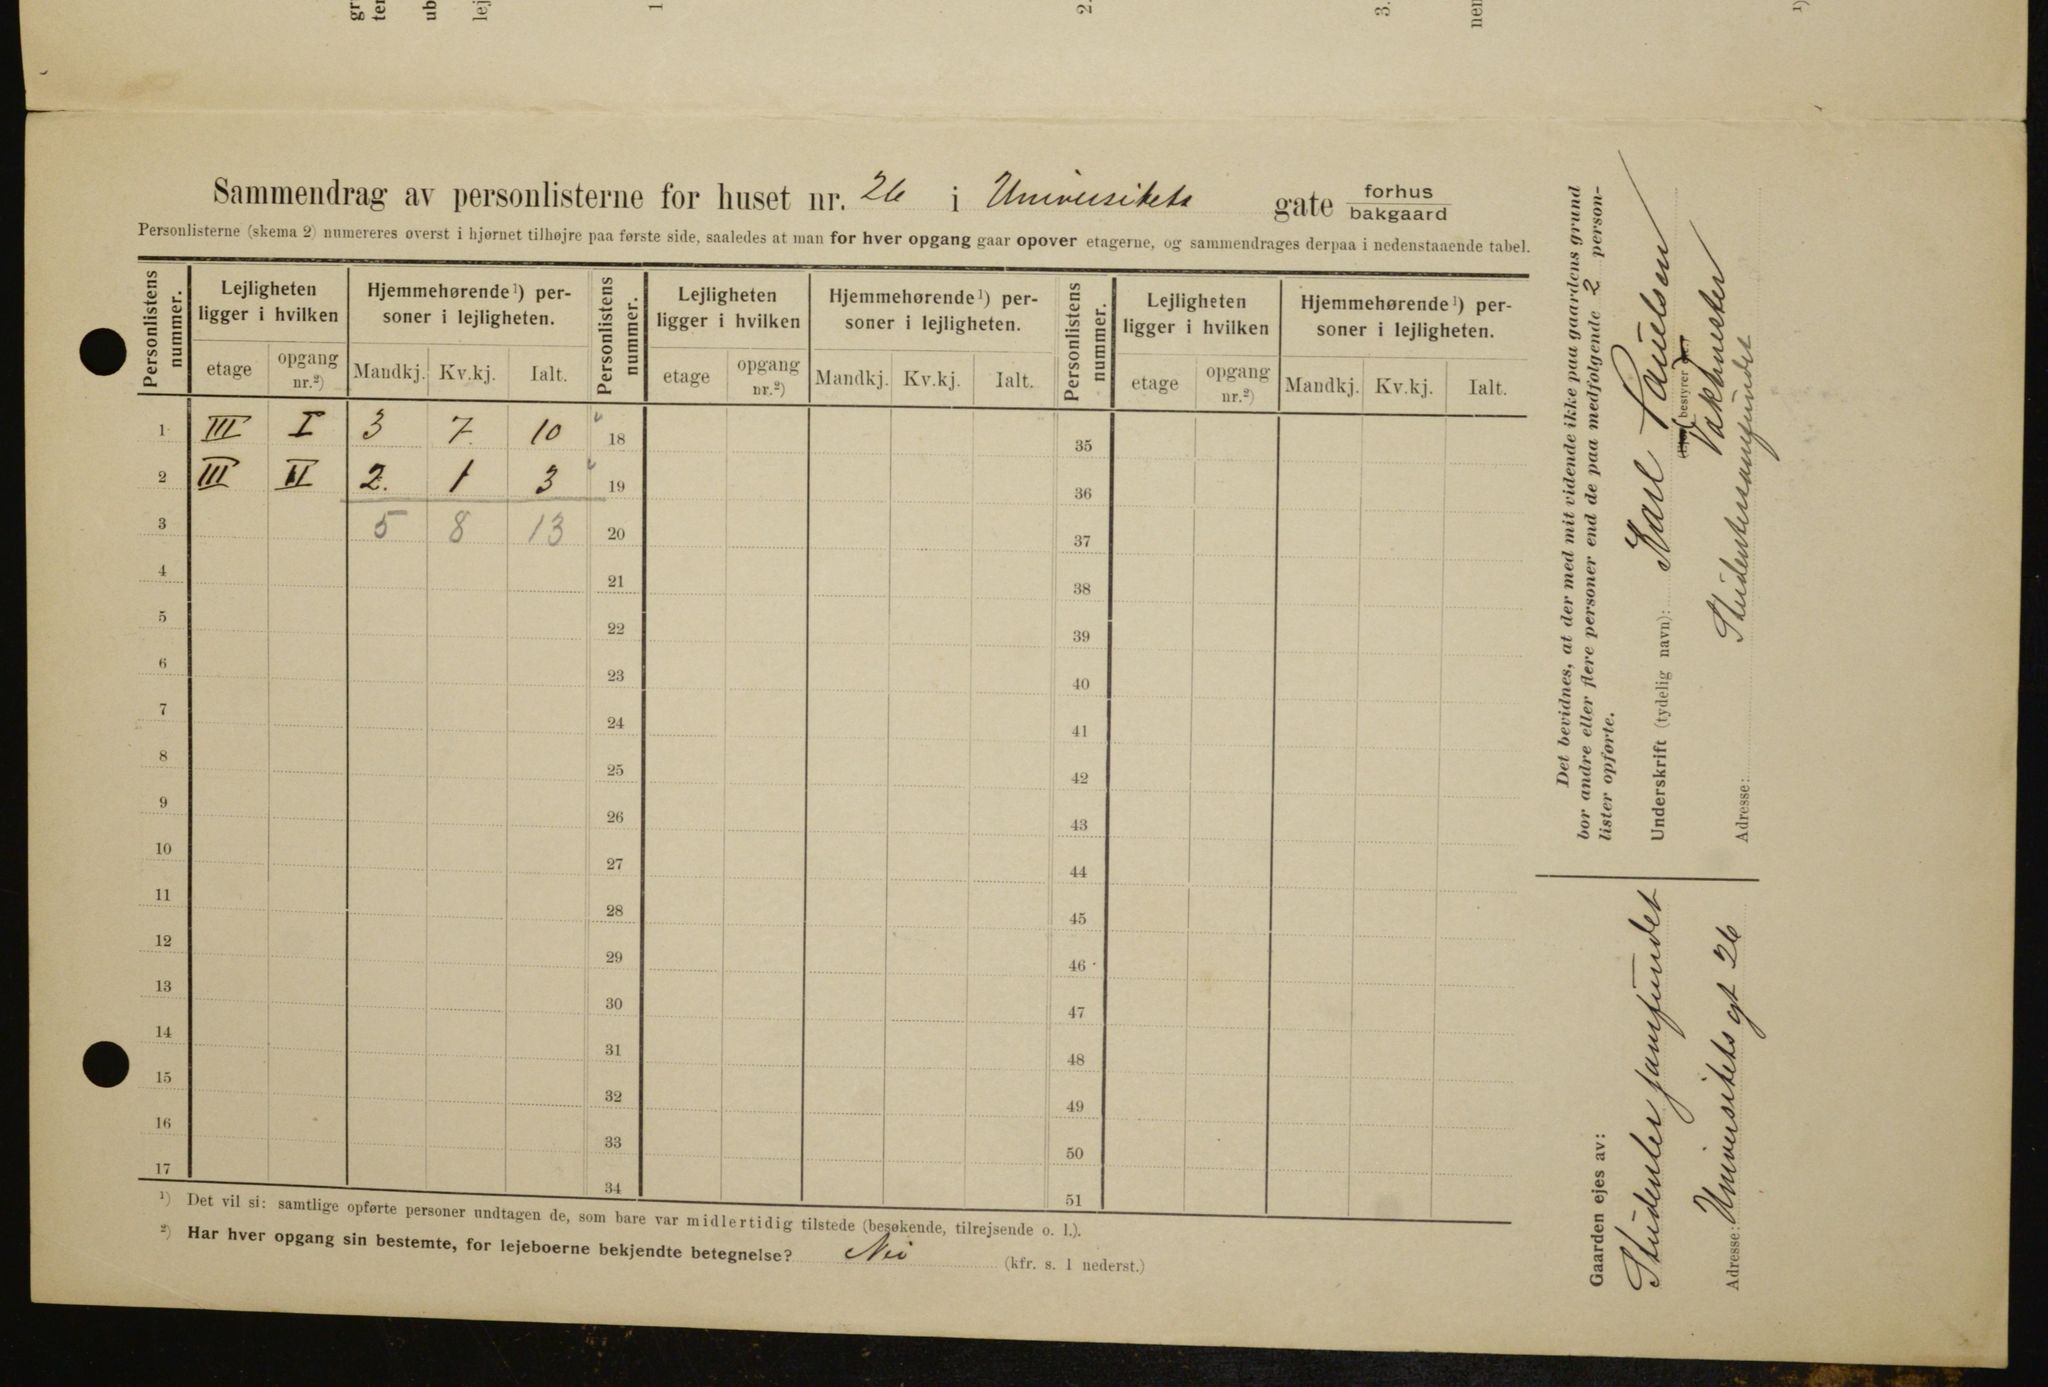 Sammendrag av personlisterne for huset nr. 26 i Universitets gate forhus bakgaard
Personlisterne (skema 2) numereres øverst i hjørnet tilhøjre paa første side, saaledes at man for hver opgang gaar opover etagerne, og sammendrages derpaa i nedenstaaende tabel.
Personlistens nummer. Lejligheten ligger i hvilken Hjemmehørende ¹) personer i lejligheten. Personlistens nummer. Lejligheten ligger i hvilken Hjemmehørende ¹) personer i lejligheten. Personlistens nummer. Lejligheten ligger i hvilken Hjemmehørende ¹) personer i lejligheten.
etage opgang nr.²) Mandkj. Kv.kj. Ialt. etage opgang nr.²) Mandkj. Kv.kj. Ialt. etage opgang nr.²) Mandkj. Kv.kj. Ialt.
1 III I 3 7 10 18 35
2 III II 2 1 3 19 36
3 5 8 13 20 37
4 21 38
5 22 39
6 23 40
7 24 41
8 25 42
9 26 43
10 27 44
11 28 45
12 29 46
13 30 47
14 31 48
15 32 49
16 33 50
17 34 51
¹) Det vil si: samtlige opførte personer undtagen de, som bare var midlertidig tilstede (besøkende, tilrejsende o. l.).
²) Har hver opgang sin bestemte, for lejeboerne bekjendte betegnelse? Nei (kfr. s. 1 nederst.)
Det bevidnes, at der med mit vidende ikke paa gaardens grund
bor andre eller flere personer end de paa medfølgende 2 person-
lister opførte.
Underskrift (tydelig navn): Karl Paulsen
bestyrer
Vaktmester
Adresse: Studentersamfundet
Gaarden ejes av:
Studentersamfundet
Adresse: Universitets gt 26